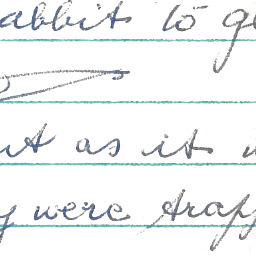 abbit to g
ut as it
y were trapp